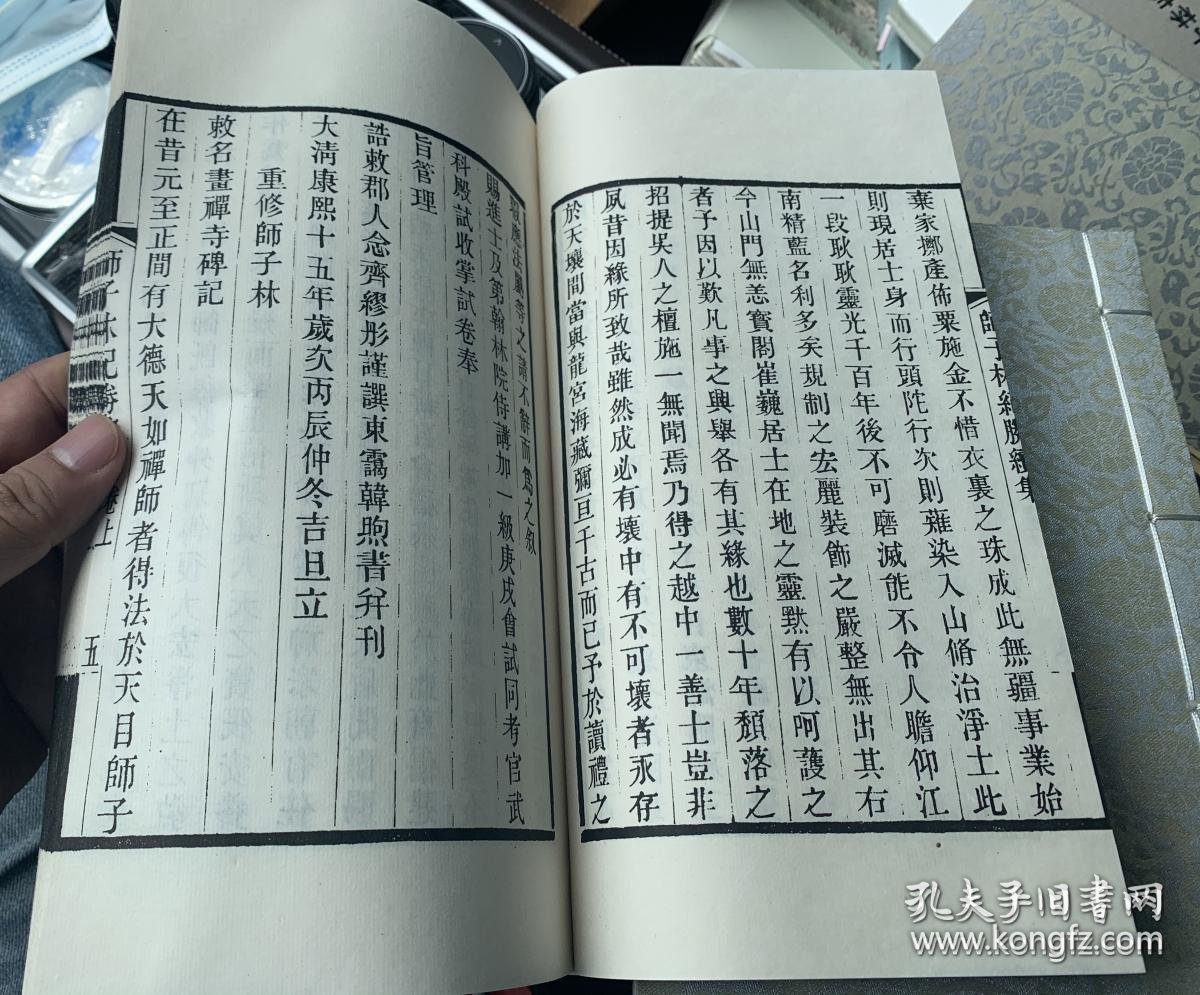 棄家擲產佈粟施金不惜衣裏之珠成此無疆事業始
則現居士身而行頭陀行次則薙染入山脩治淨土此
一段耿耿靈光千百年後不可磨滅能不令人瞻仰江
南精藍名利多矣規制之宏麗裝飾之嚴整無出其右
今山門無恙寳閣崔巍居士在地之靈黙有以呵護之
者予因以歎凡事之興舉各有其緣也數十年頽落之
招提吴人之檀施一無聞焉乃得之越中一善士豈非
夙昔因緣所致哉雖然成必有壞中有不可壞者永存
於天壤間當與龍宮海藏彌亘千古而已予於讀禮之
之請不辭而爲之叙
賜進士及第翰林院侍講加一級庚戌會試同考官武
科殿試收掌試卷奉
旨管理
誥敕郡人念齊繆彤謹譔東霭韓煦書并刊
大淸康熙十五年歲次丙辰仲冬吉旦立
重修師子林
敕名畫禪寺碑記
在昔元至正間有大德天如禪師者得法於天目師子
師子林紀勝
卷上
五
師子林紀勝續集
孔夫子旧书网
www.kongfz.com